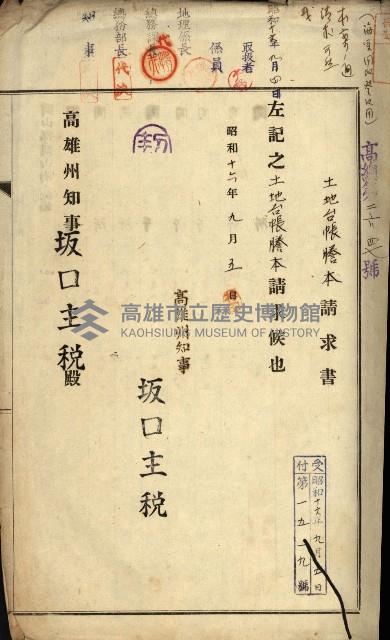 土地台帳謄本請求書
左記之土地台帳謄本請求候也
昭和十六年九月五日
高雄州知事
坂口主税
高雄州知事坂口主税殿
取扱者
係員
地理係長
總務課長
總務部長
知事
代決
受付
昭和十六年九月五日
第一五一九號
高雄市立歷史博物館
KAOHSIUNG MUSEUM OF HISTORY